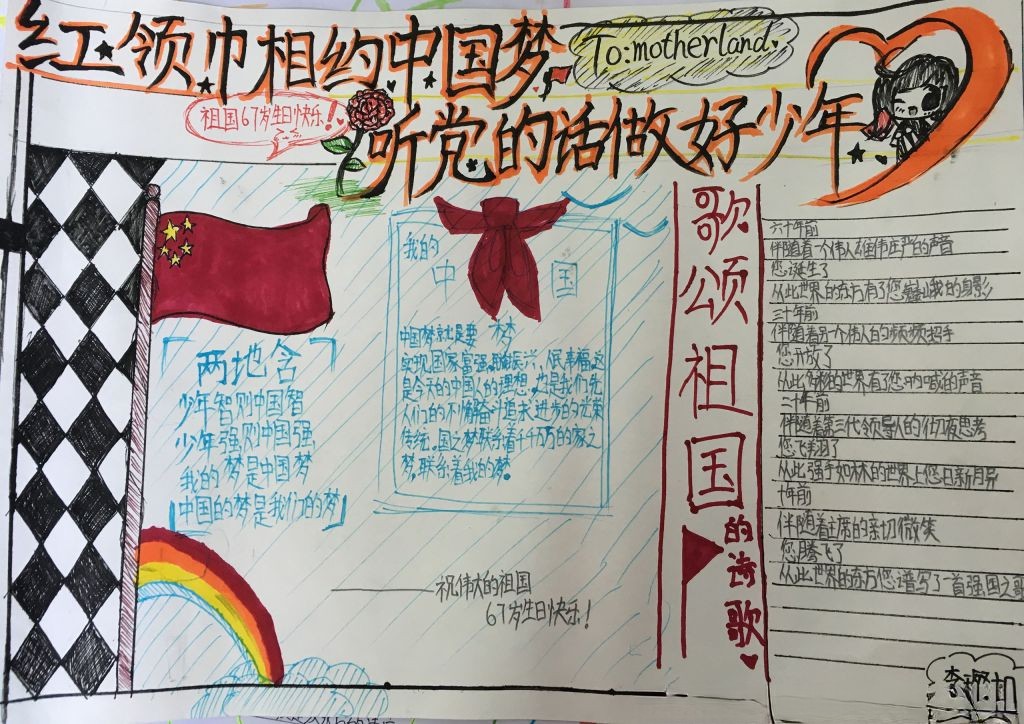 红领巾相约中国梦
To: motherland.
祖国67岁生日快乐!
听党的话做好少年
「两地含」
少年智则中国智
少年强则中国强
我的梦是中国梦
中国的梦是我们的梦
我的
中 国
梦
中国梦就是要
实现国家富强,民族振兴,人民幸福,这
是今天的中国人的理想,也是我们先
人们的不懈奋斗追求进步的光荣
传统。国之梦联系着千千万万的家之
梦,联系着我的梦。
——祝伟大的祖国
67岁生日快乐!
歌颂祖国的诗歌
六十年前
伴随着一个伟人雄伟庄严的声音
您诞生了
从此世界的东方有了您巍巍的身影
三十年前
伴随着另一个伟人的频频招手
您开放了
从此多彩的世界有了您呐喊的声音
二十年前
伴随着第三代领导人的彻夜思考
您飞翔了
从此强手如林的世界上您日新月异
十年前
伴随着主席的亲切微笑
您腾飞了
从此世界的东方您谱写了一首强国之歌